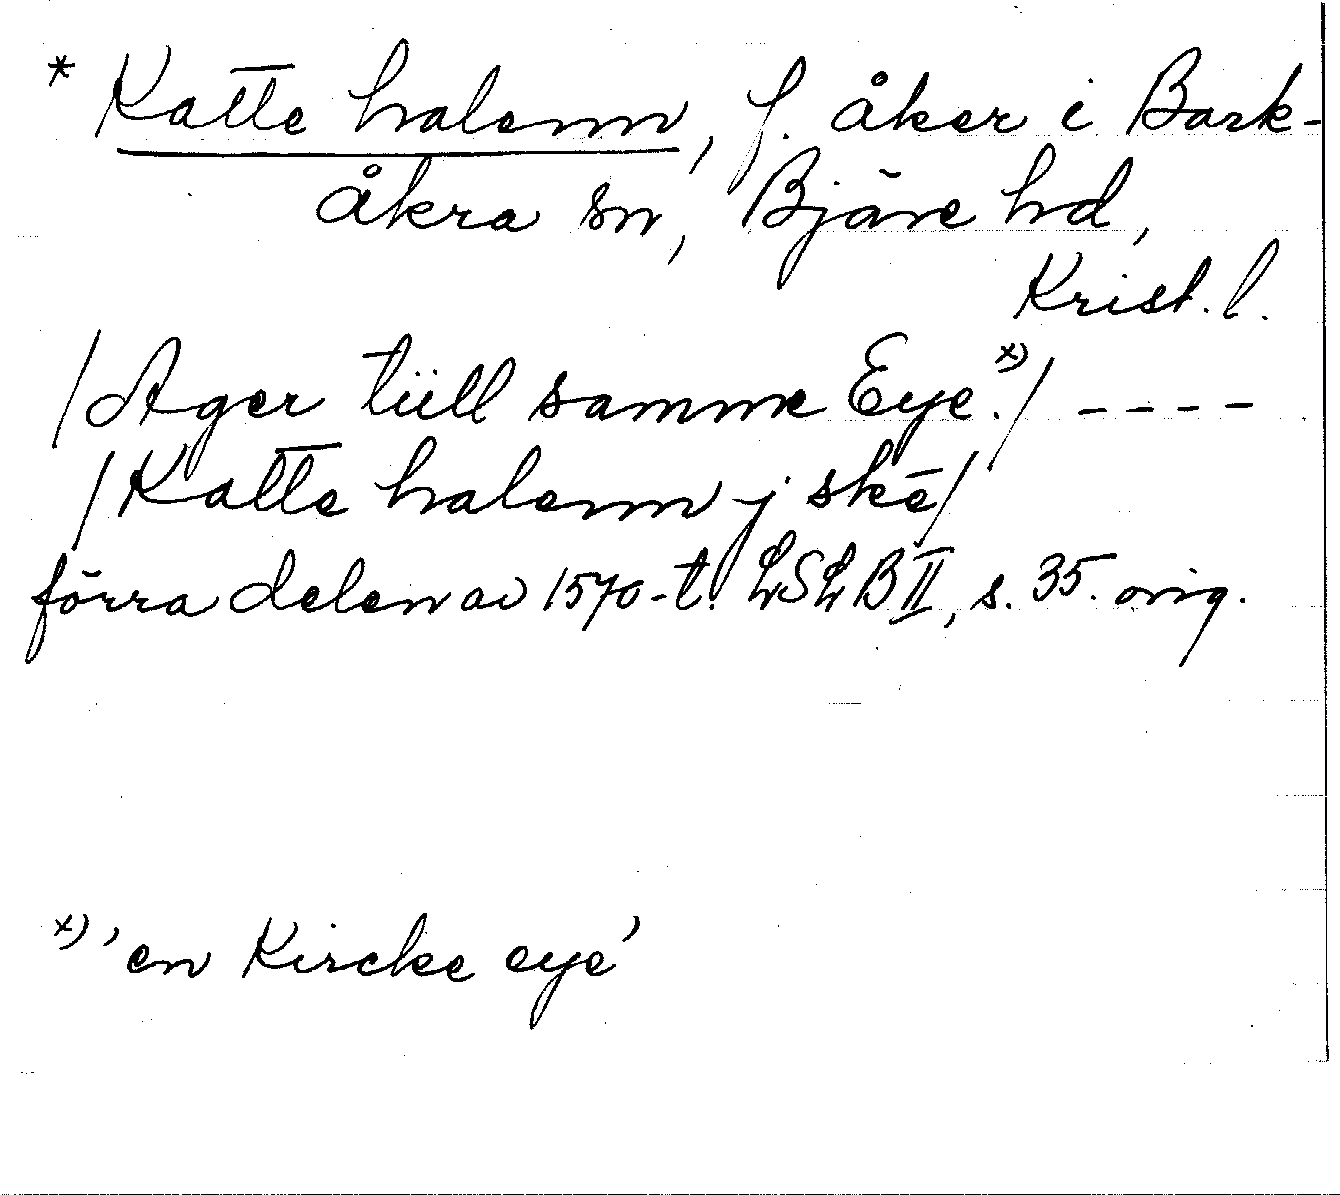 * Katte halenn, f. åker i Bark-
åkra sn, Bjäre hd,
Krist. l.
/Ager tiill samme Eye.x)/ ----
/Katte halenn j ské/
förra delen av 1570-t. LSLB II, s. 35. orig.
x) 'en Kircke eye'